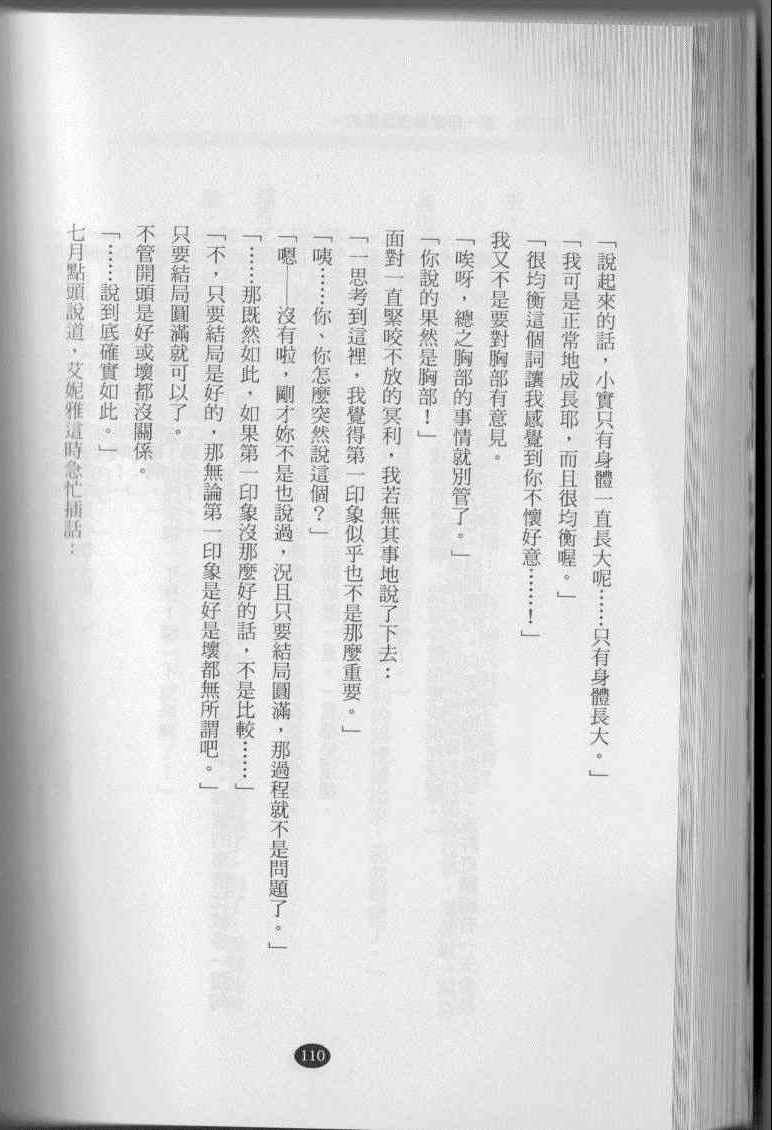 「說起來的話，小實只有身體一直長大呢……只有身體長大。」
「我可是正常地成長耶，而且很均衡喔。」
「很均衡這個詞讓我感覺到你不懷好意……！」
我又不是要對胸部有意見。
「唉呀，總之胸部的事情就別管了。」
「你說的果然是胸部！」
面對一直緊咬不放的冥利，我若無其事地說了下去：
「一思考到這裡，我覺得第一印象似乎也不是那麼重要。」
「咦……你、你怎麼突然說這個？」
「嗯——沒有啦，剛才妳不是也說過，況且只要結局圓滿，那過程就不是問題了。」
「……那既然如此，如果第一印象沒那麼好的話，不是比較……」
「不，只要結局是好的，那無論第一印象是好是壞都無所謂吧。」
只要結局圓滿就可以了。
不管開頭是好或壞都沒關係。
「……說到底確實如此。」
七月點頭說道，艾妮雅這時急忙插話：
110